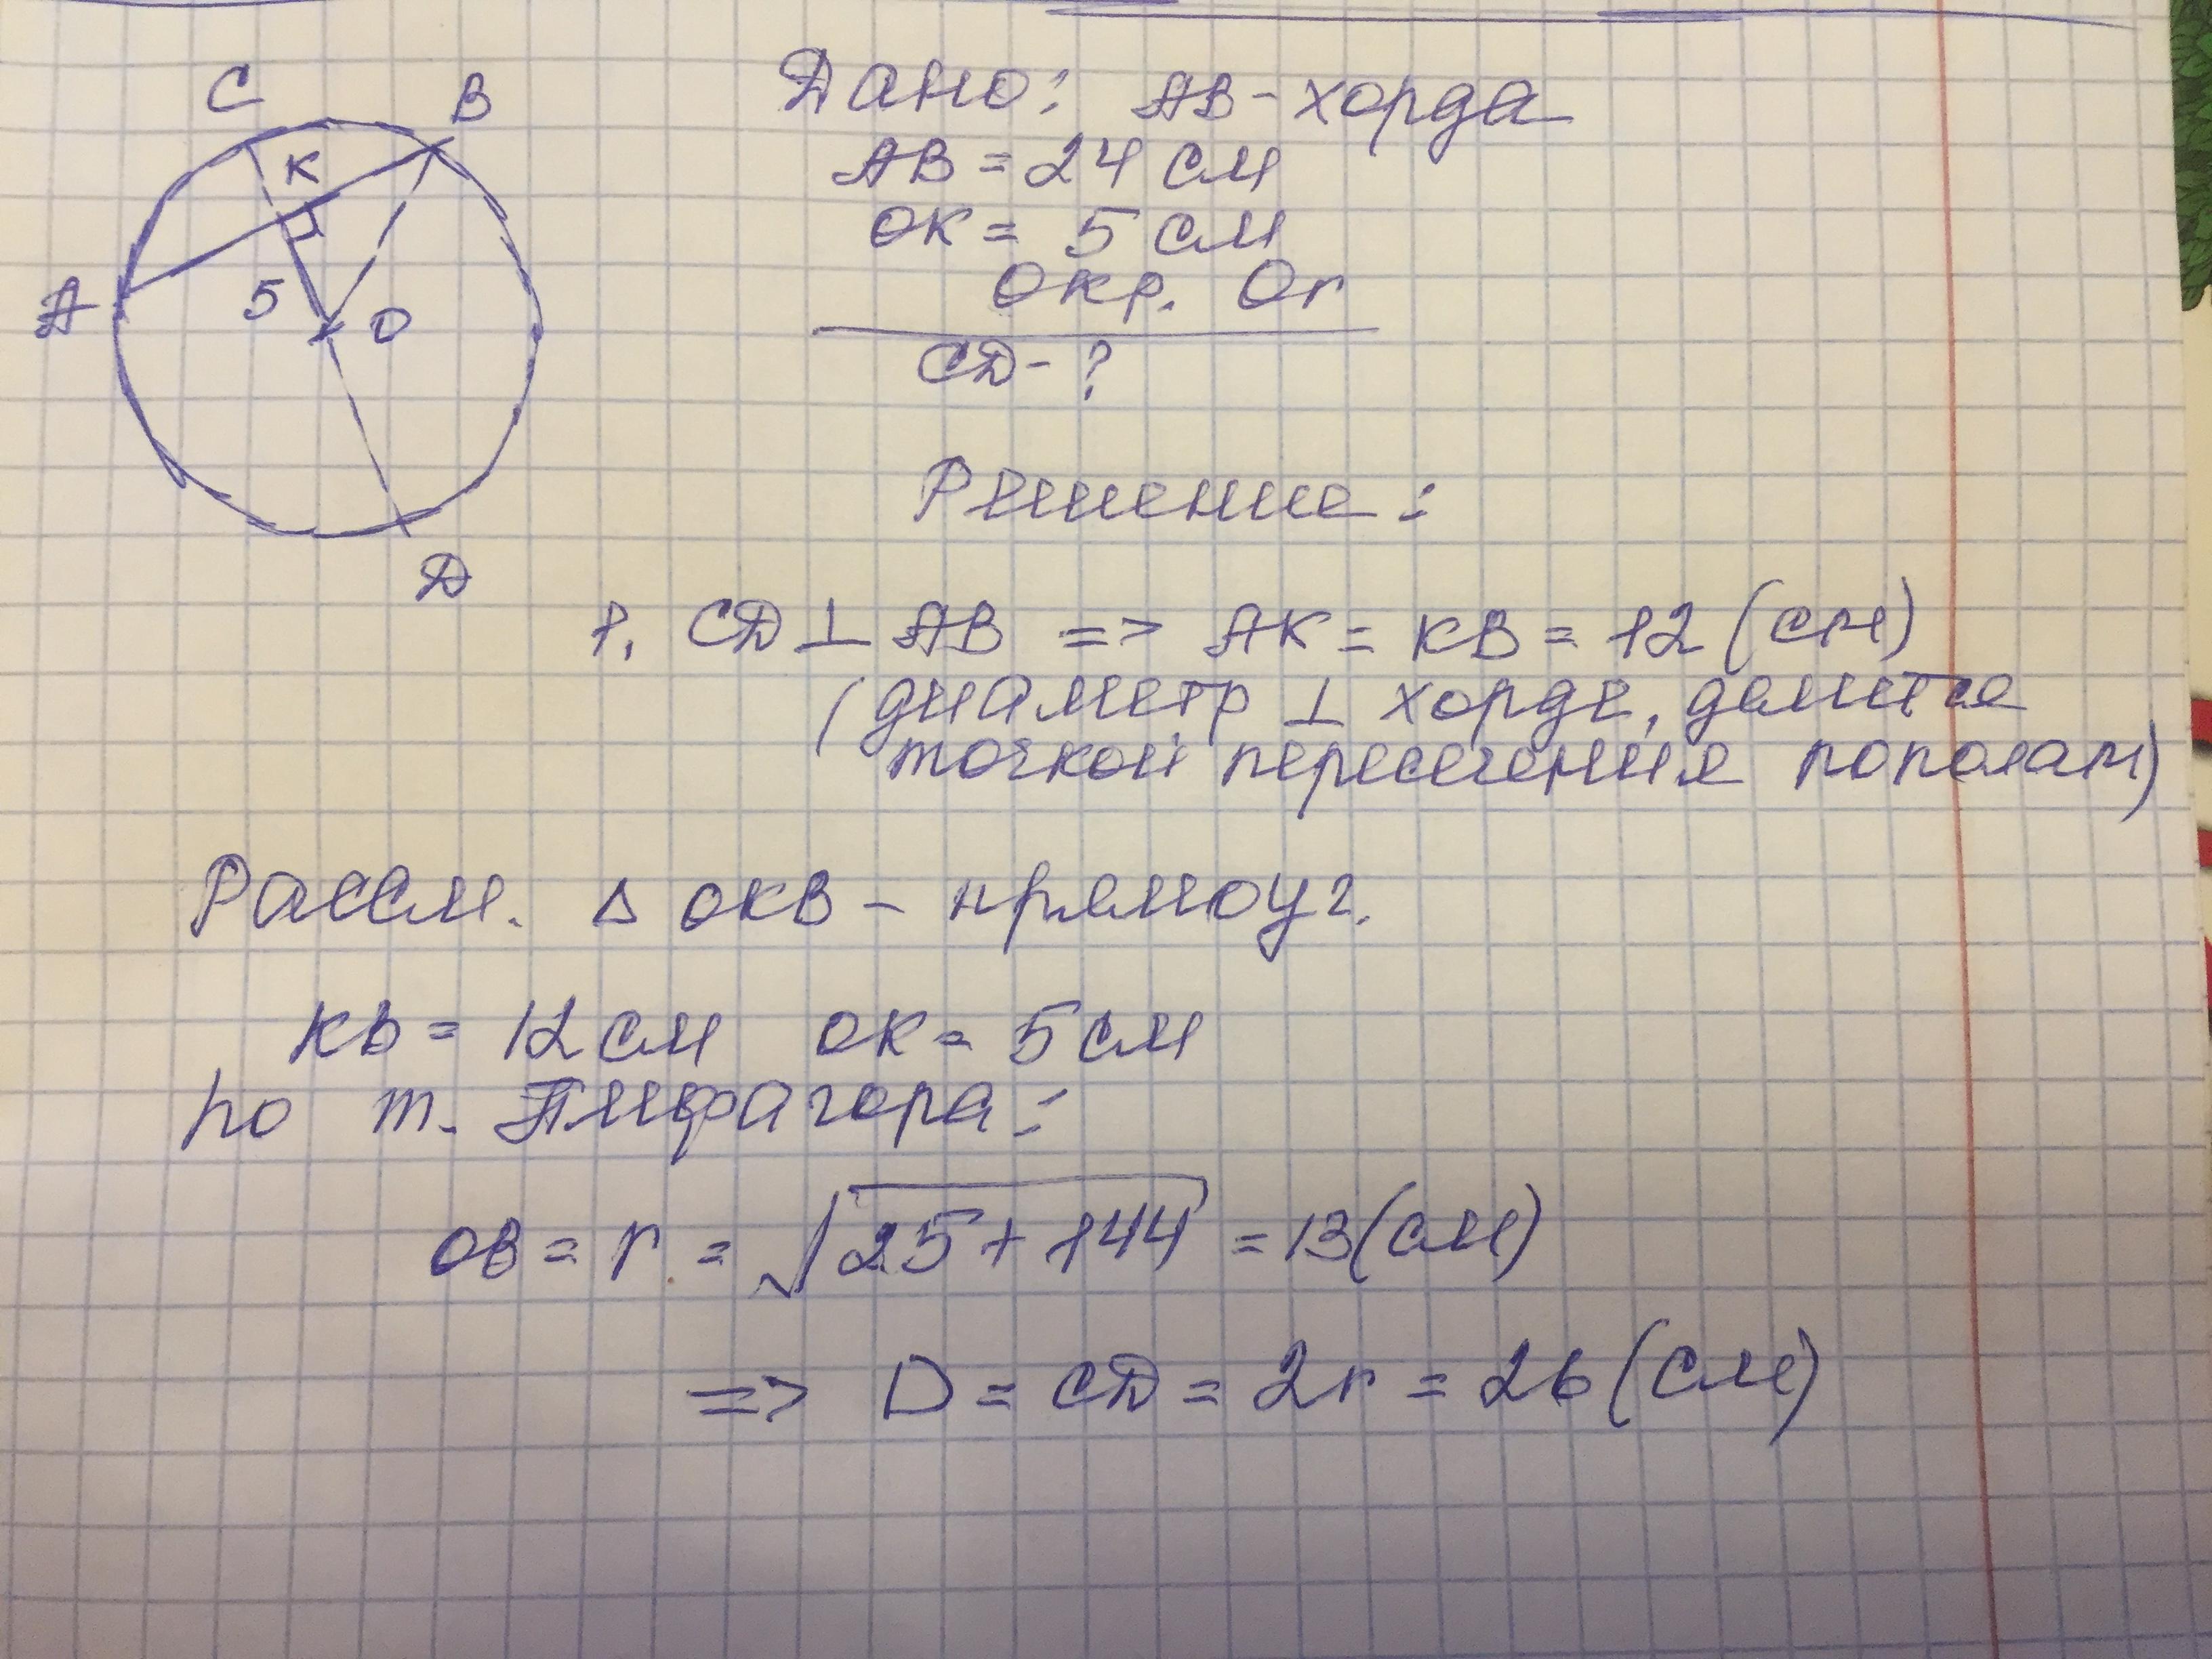 С
В
К
А
5
О
Д
Дано: АВ - хорда
АВ = 24 см
ОК = 5 см
Окр. Or
СД - ?
Решение:
1. СД ⊥ АВ => АК = КВ = 12 (см)
(диаметр ⊥ хорде, делится
точкой пересечения пополам)
Рассм. Δ ОКВ - прямоуг.
КВ = 12 см ОК = 5 см
по т. Пифагора:
ОВ = r = √25 + 144 = 13 (см)
=> D = СД = 2r = 26 (см)